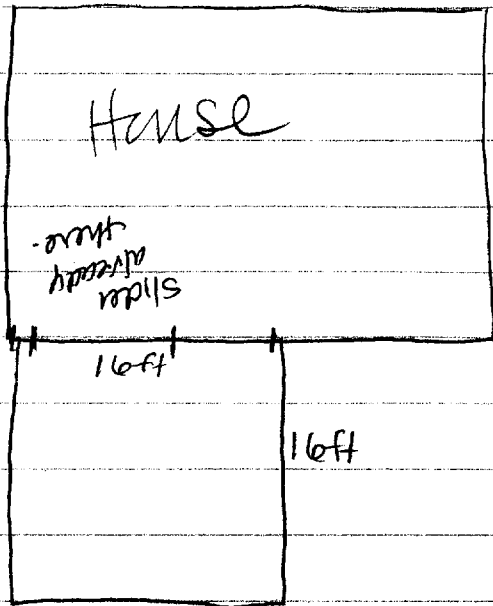 House
slider
already
there.
16ft
16ft